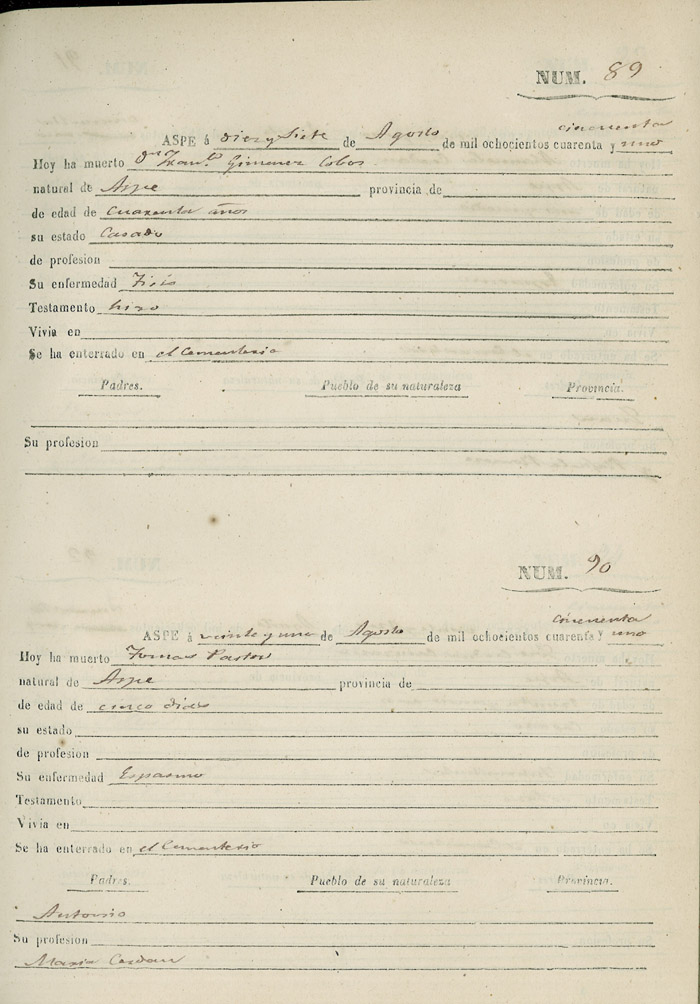 NUM. 89
cincuenta
ASPE á diez y Siete de Agosto de mil ochocientos cuarenta y uno
Hoy ha muerto Dn Franco. Gimenez Cobos
natural de Aspe provincia de
de edad de Cuarenta años
su estado Casado
de profesion
Su enfermedad Tisis
Testamento hizo
Vivia en
Se ha enterrado en el Cementerio
Padres. Pueblo de su naturaleza Provincia.
Su profesion
NUM. 90
cincuenta
ASPE á veinte y uno de Agosto de mil ochocientos cuarenta y uno
Hoy ha muerto Tomas Pastor
natural de Aspe provincia de
de edad de cinco dias
su estado
de profesion
Su enfermedad Espasmo
Testamento
Vivia en
Se ha enterrado en el Cementerio
Padres. Pueblo de su naturaleza Provincia.
Antonio
Su profesion
Maria